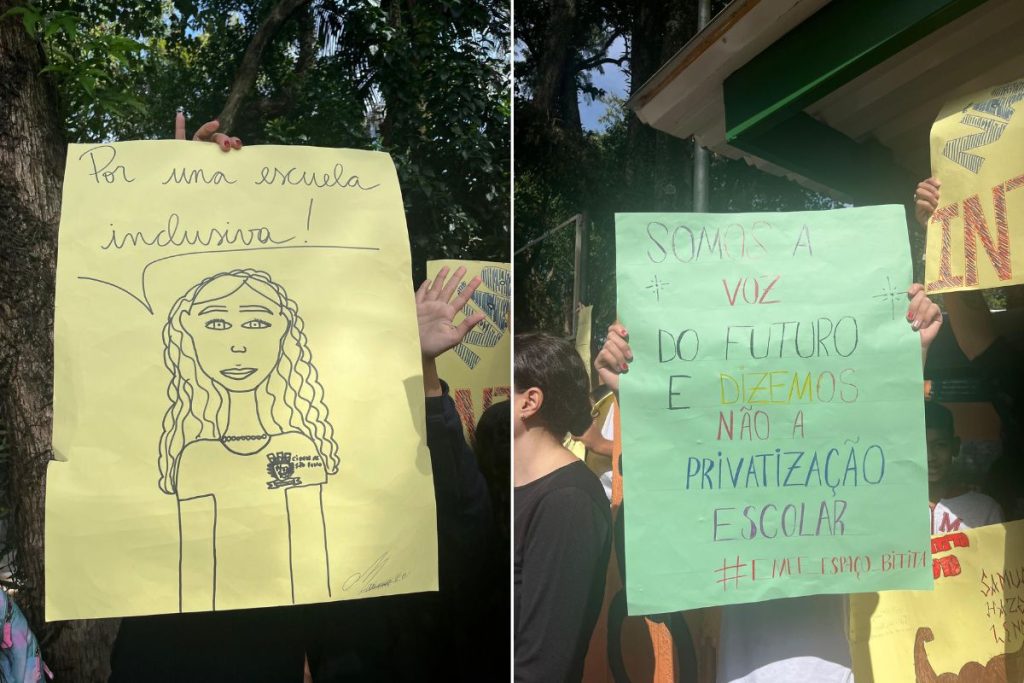 Por una escuela
inclusiva!
CIDADE DE
SÃO PAULO
SOMOS A
VOZ
DO FUTURO
E DIZEMOS
NÃO A
PRIVATIZAÇÃO
ESCOLAR
#EMEF_ESPAÇO_BITITA
INT
SAMU